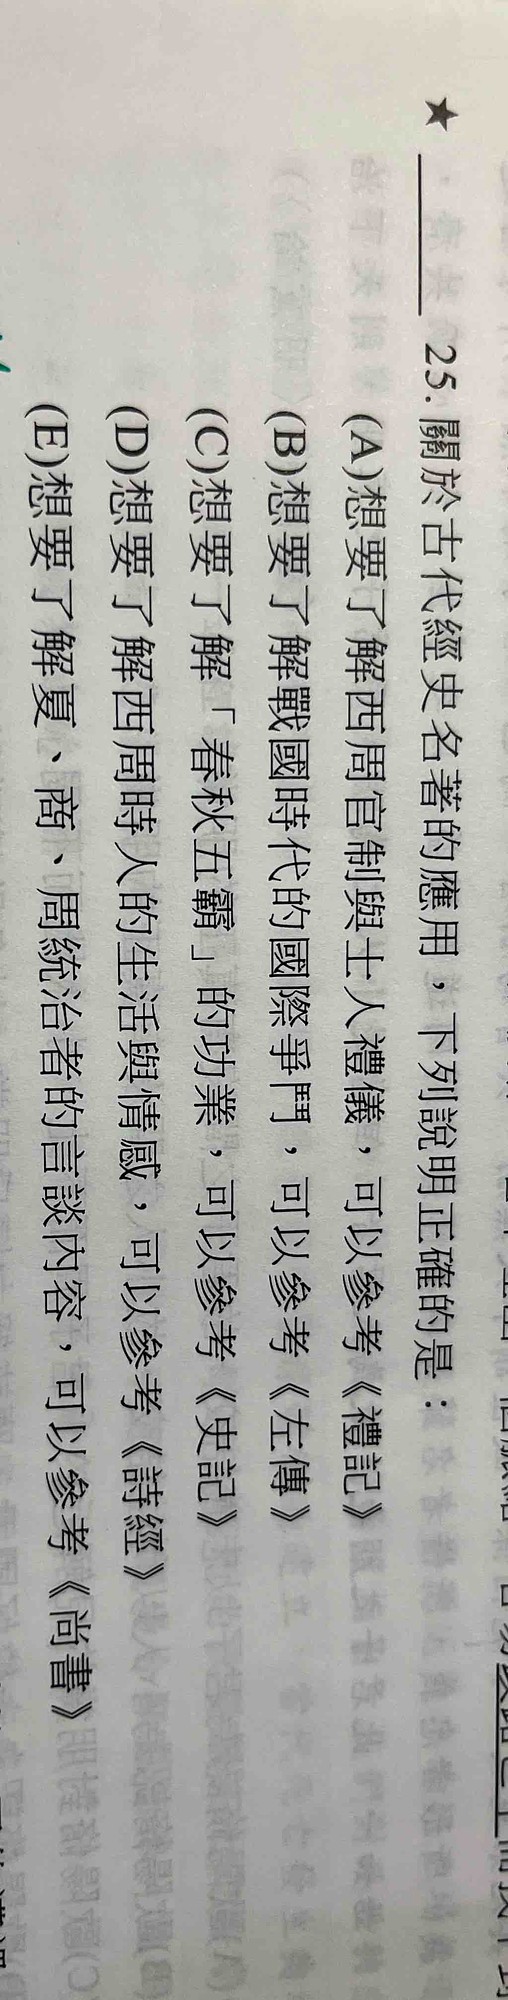 ★ ＿＿＿ 25.關於古代經史名著的應用，下列說明正確的是：
(A)想要了解西周官制與士人禮儀，可以參考《禮記》
(B)想要了解戰國時代的國際爭鬥，可以參考《左傳》
(C)想要了解「春秋五霸」的功業，可以參考《史記》
(D)想要了解西周時人的生活與情感，可以參考《詩經》
(E)想要了解夏、商、周統治者的言談內容，可以參考《尚書》